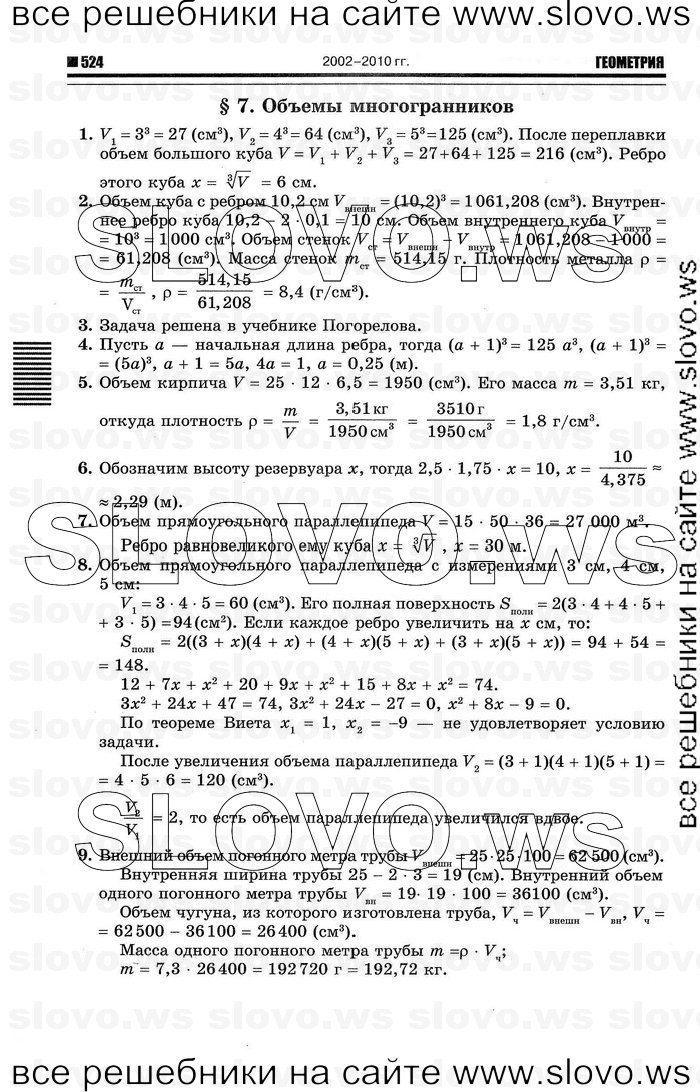 все решебники на сайте www.slovo.ws
524 2002–2010 гг. ГЕОМЕТРИЯ
§ 7. Объемы многогранников
1. V₁ = 3³ = 27 (см³), V₂ = 4³ = 64 (см³), V₃ = 5³ =125 (см³). После переплавки
объем большого куба V = V₁ + V₂ + V₃ = 27+64+ 125 = 216 (см³). Ребро
этого куба x = ∛V = 6 см.
2. Объем куба с ребром 10,2 см Vвнешн = (10,2)³ = 1061,208 (см³). Внутрен-
нее ребро куба 10,2 – 2 · 0,1 = 10 см. Объем внутреннего куба Vвнутр =
= 10³ = 1000 см³. Объем стенок Vст = Vвнешн – Vвнутр = 1061,208 – 1000 =
= 61,208 (см³). Масса стенок mст = 514,15 г. Плотность металла ρ =
= mст/Vст , ρ = 514,15/61,208 = 8,4 (г/см³).
3. Задача решена в учебнике Погорелова.
4. Пусть a — начальная длина ребра, тогда (a + 1)³ = 125 a³, (a + 1)³ =
= (5a)³, a + 1 = 5a, 4a = 1, a = 0,25 (м).
5. Объем кирпича V = 25 · 12 · 6,5 = 1950 (см³). Его масса m = 3,51 кг,
откуда плотность ρ = m/V = 3,51 кг/1950 см³ = 3510 г/1950 см³ = 1,8 г/см³.
6. Обозначим высоту резервуара x, тогда 2,5 · 1,75 · x = 10, x = 10/4,375 ≈
≈ 2,29 (м).
7. Объем прямоугольного параллепипеда V = 15 · 50 · 36 = 27 000 м³.
Ребро равновеликого ему куба x = ∛V , x = 30 м.
8. Объем прямоугольного параллепипеда с измерениями 3 см, 4 см,
5 см:
V₁ = 3 · 4 · 5 = 60 (см³). Его полная поверхность Sполн = 2(3 · 4 + 4 · 5 +
+ 3 · 5) =94(см²). Если каждое ребро увеличить на x см, то:
Sполн = 2((3 + x)(4 + x) + (4 + x)(5 + x) + (3 + x)(5 + x)) = 94 + 54 =
= 148.
12 + 7x + x² + 20 + 9x + x² + 15 + 8x + x² = 74.
3x² + 24x + 47 = 74, 3x² + 24x – 27 = 0, x² + 8x – 9 = 0.
По теореме Виета x₁ = 1, x₂ = –9 — не удовлетворяет условию
задачи.
После увеличения объема параллепипеда V₂ = (3 + 1)(4 + 1)(5 + 1) =
= 4 · 5 · 6 = 120 (см³).
V₂/V₁ = 2, то есть объем параллепипеда увеличился вдвое.
9. Внешний объем погонного метра трубы Vвнешн = 25·25·100 = 62 500 (см³).
Внутренняя ширина трубы 25 – 2 · 3 = 19 (см). Внутренний объем
одного погонного метра трубы Vвн = 19· 19 · 100 = 36100 (см³).
Объем чугуна, из которого изготовлена труба, Vч = Vвнешн – Vвн, Vч =
= 62 500 – 36 100 = 26 400 (см³).
Масса одного погонного метра трубы m =ρ · Vч;
m = 7,3 · 26 400 = 192 720 г = 192,72 кг.
SLOVO.ws
SLOVO.ws
SLOVO.ws
все решебники на сайте www.slovo.ws
все решебники на сайте www.slovo.ws